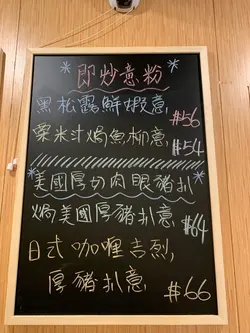 *即炒意粉*
黑松露鮮蝦意 $56
粟米汁焗魚柳意 $54
*美國厚切肉眼豬扒*
焗美國厚豬扒意 $64
日式咖喱吉烈,
厚豬扒意 $66